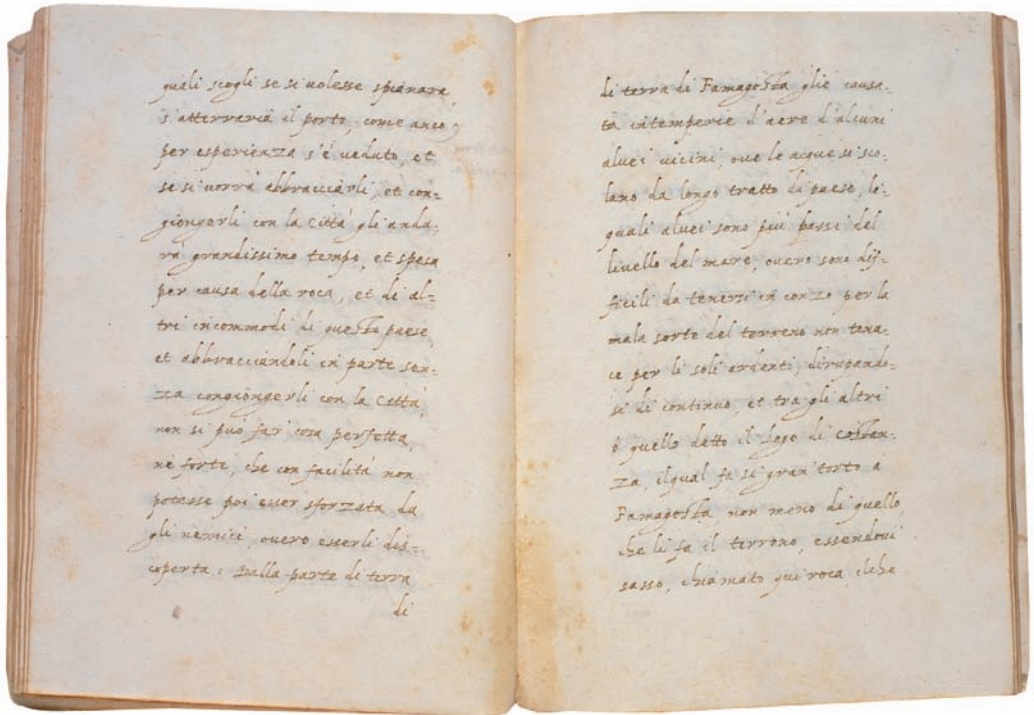 quali scogli se si uolesse spianare,
s'atterraria il porto, come anco
per esperienza s'é ueduto, et
se si uorrá abbracciarli, et con=
giongerli con la Cittá gli anda=
rá grandissimo tempo, et spesa
per causa della roca, et di al=
tri incommodi di questo paese
et abbracciandoli in parte sen=
za congiongerli con la Cittá,
non si puó far cosa perfetta,
né forte, che con facilitá non
potesse poi esser sforzata da
gli nemici, ouero esserli dis=
coperta: Dalla parte di terra
di
di terra di Famagosta glie causa=
ta intemperie d'aere d'alcuni
aluei uicini, oue le acque si sco=
lano da longo tratto di paese, li=
quali aluei sono piú bassi del
liuello del mare, ouero sono dif=
ficili da tenersi in conzo per la
mala sorte del terreno non tena=
ce per li soli ardenti, dirupando=
si di continuo, et tra gli altri
é quello detto il lago di Costan=
za, ilqual fa si gran torto á
Famagosta, non meno di quello,
che li fa il terreno, essendoui
sasso, chiamato qui roca, ilche